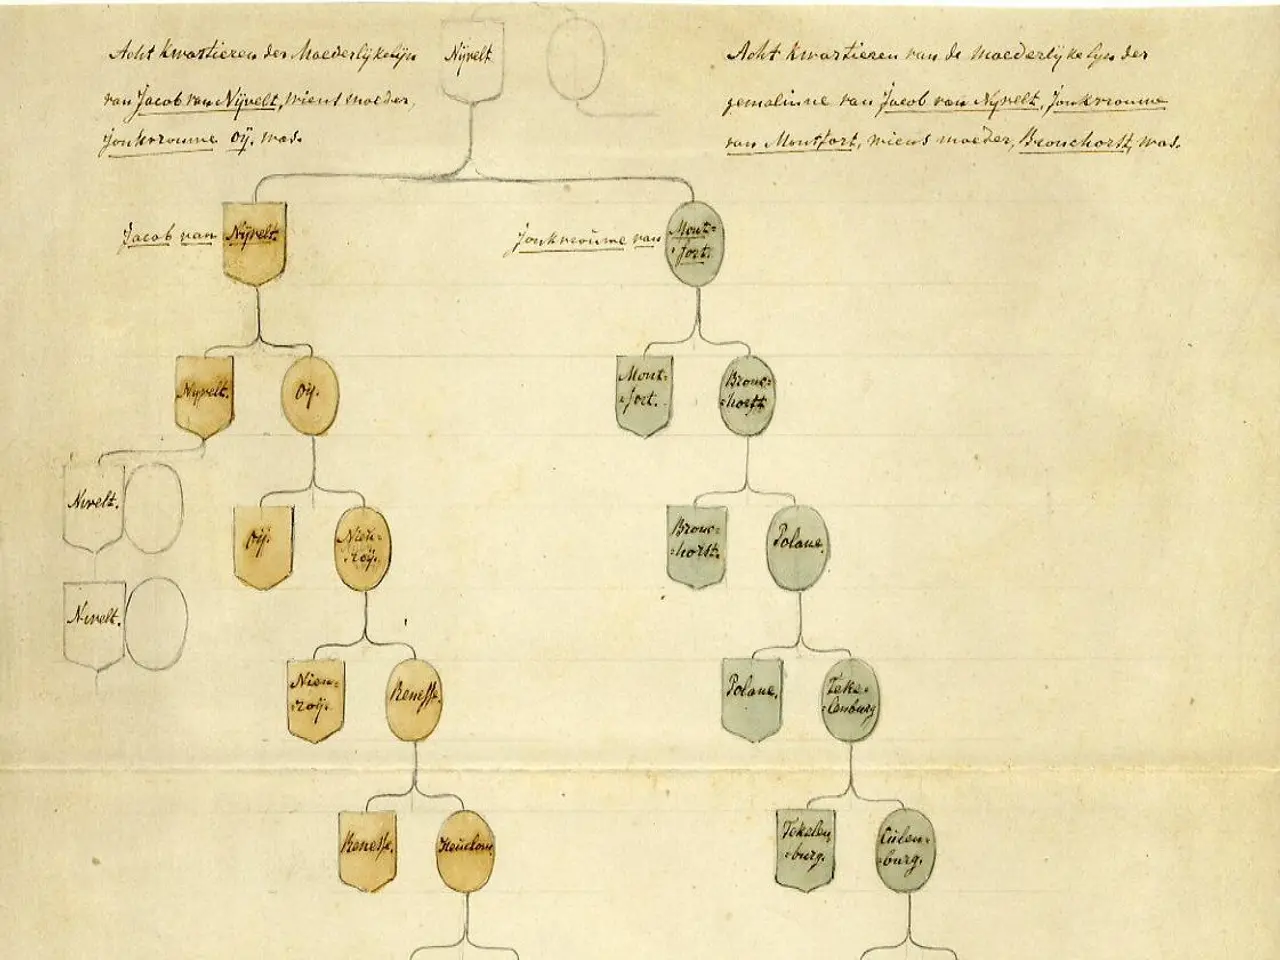 Acht kwartieren der Moederlijkelijn
van Jacob van Nijvelt, wiens moeder,
jonkvrouwe Oÿ. was.
Nijvelt
Acht kwartieren van de moederlijke lijn der
gemalinne van Jacob van Nijvelt, Jonkvrouwe
van Montfort, wiens moeder, Bronchorst, was.
Jacob van Nijvelt.
Jonkvrouwe van Mont=
=fort.
Nijvelt.
Oÿ.
Mont=
=fort.
Bronc=
=horst
Nivelt.
Oÿ.
Nien=
=roÿ.
Bronc=
=horst.
Polane.
Nivelt.
Nien=
=roÿ.
Renesse.
Polane.
Teke=
=lenburg
Renesse.
Heuclom
Tekelen
=burg.
Cúlen=
=burg.